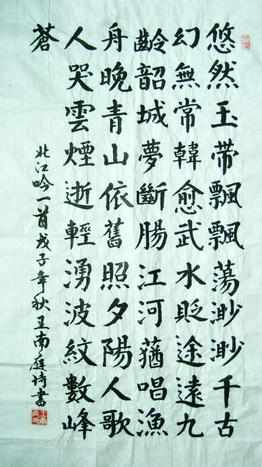 悠然玉帶飄飄蕩渺渺千古
幻無常韓愈武水貶途遠九
齡韶城夢斷腸江河猶唱漁
舟晚青山依舊照夕陽人歌
人哭雲煙逝輕湧波紋數峰
蒼
北江吟一首戊子年秋王南書